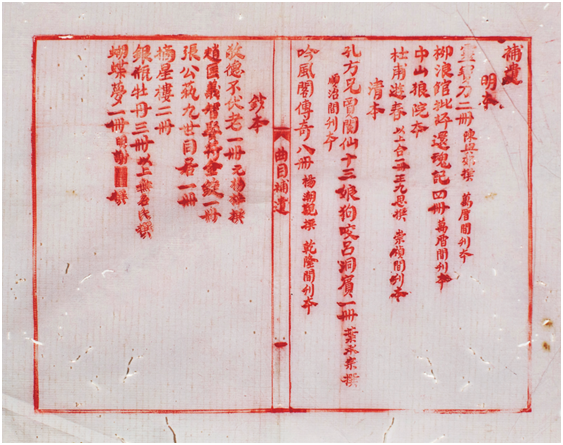 補遺
明本
靈寶刀二冊 陳與郊撰 萬曆間刊本
柳浪館批評還魂記四冊 萬曆間刊本
中山狼院本
杜甫遊春 以上合一冊 王九思撰 崇禎間刊本
清本
孔方兄 賈閬仙 十三娘 狗咬呂洞賓一冊 葉承宗撰
順治間刊本
吟風閣傳奇八冊 楊潮觀撰 乾隆間刊本
曲目補遺
鈔本
敬德不伏老一冊 元楊梓撰
趙匡義智娶符金錠一冊
張公藝九世同居一冊
摘星樓二冊
銀瓶牡丹三冊 以上撰者失撰
蝴蝶夢一冊 明謝 撰